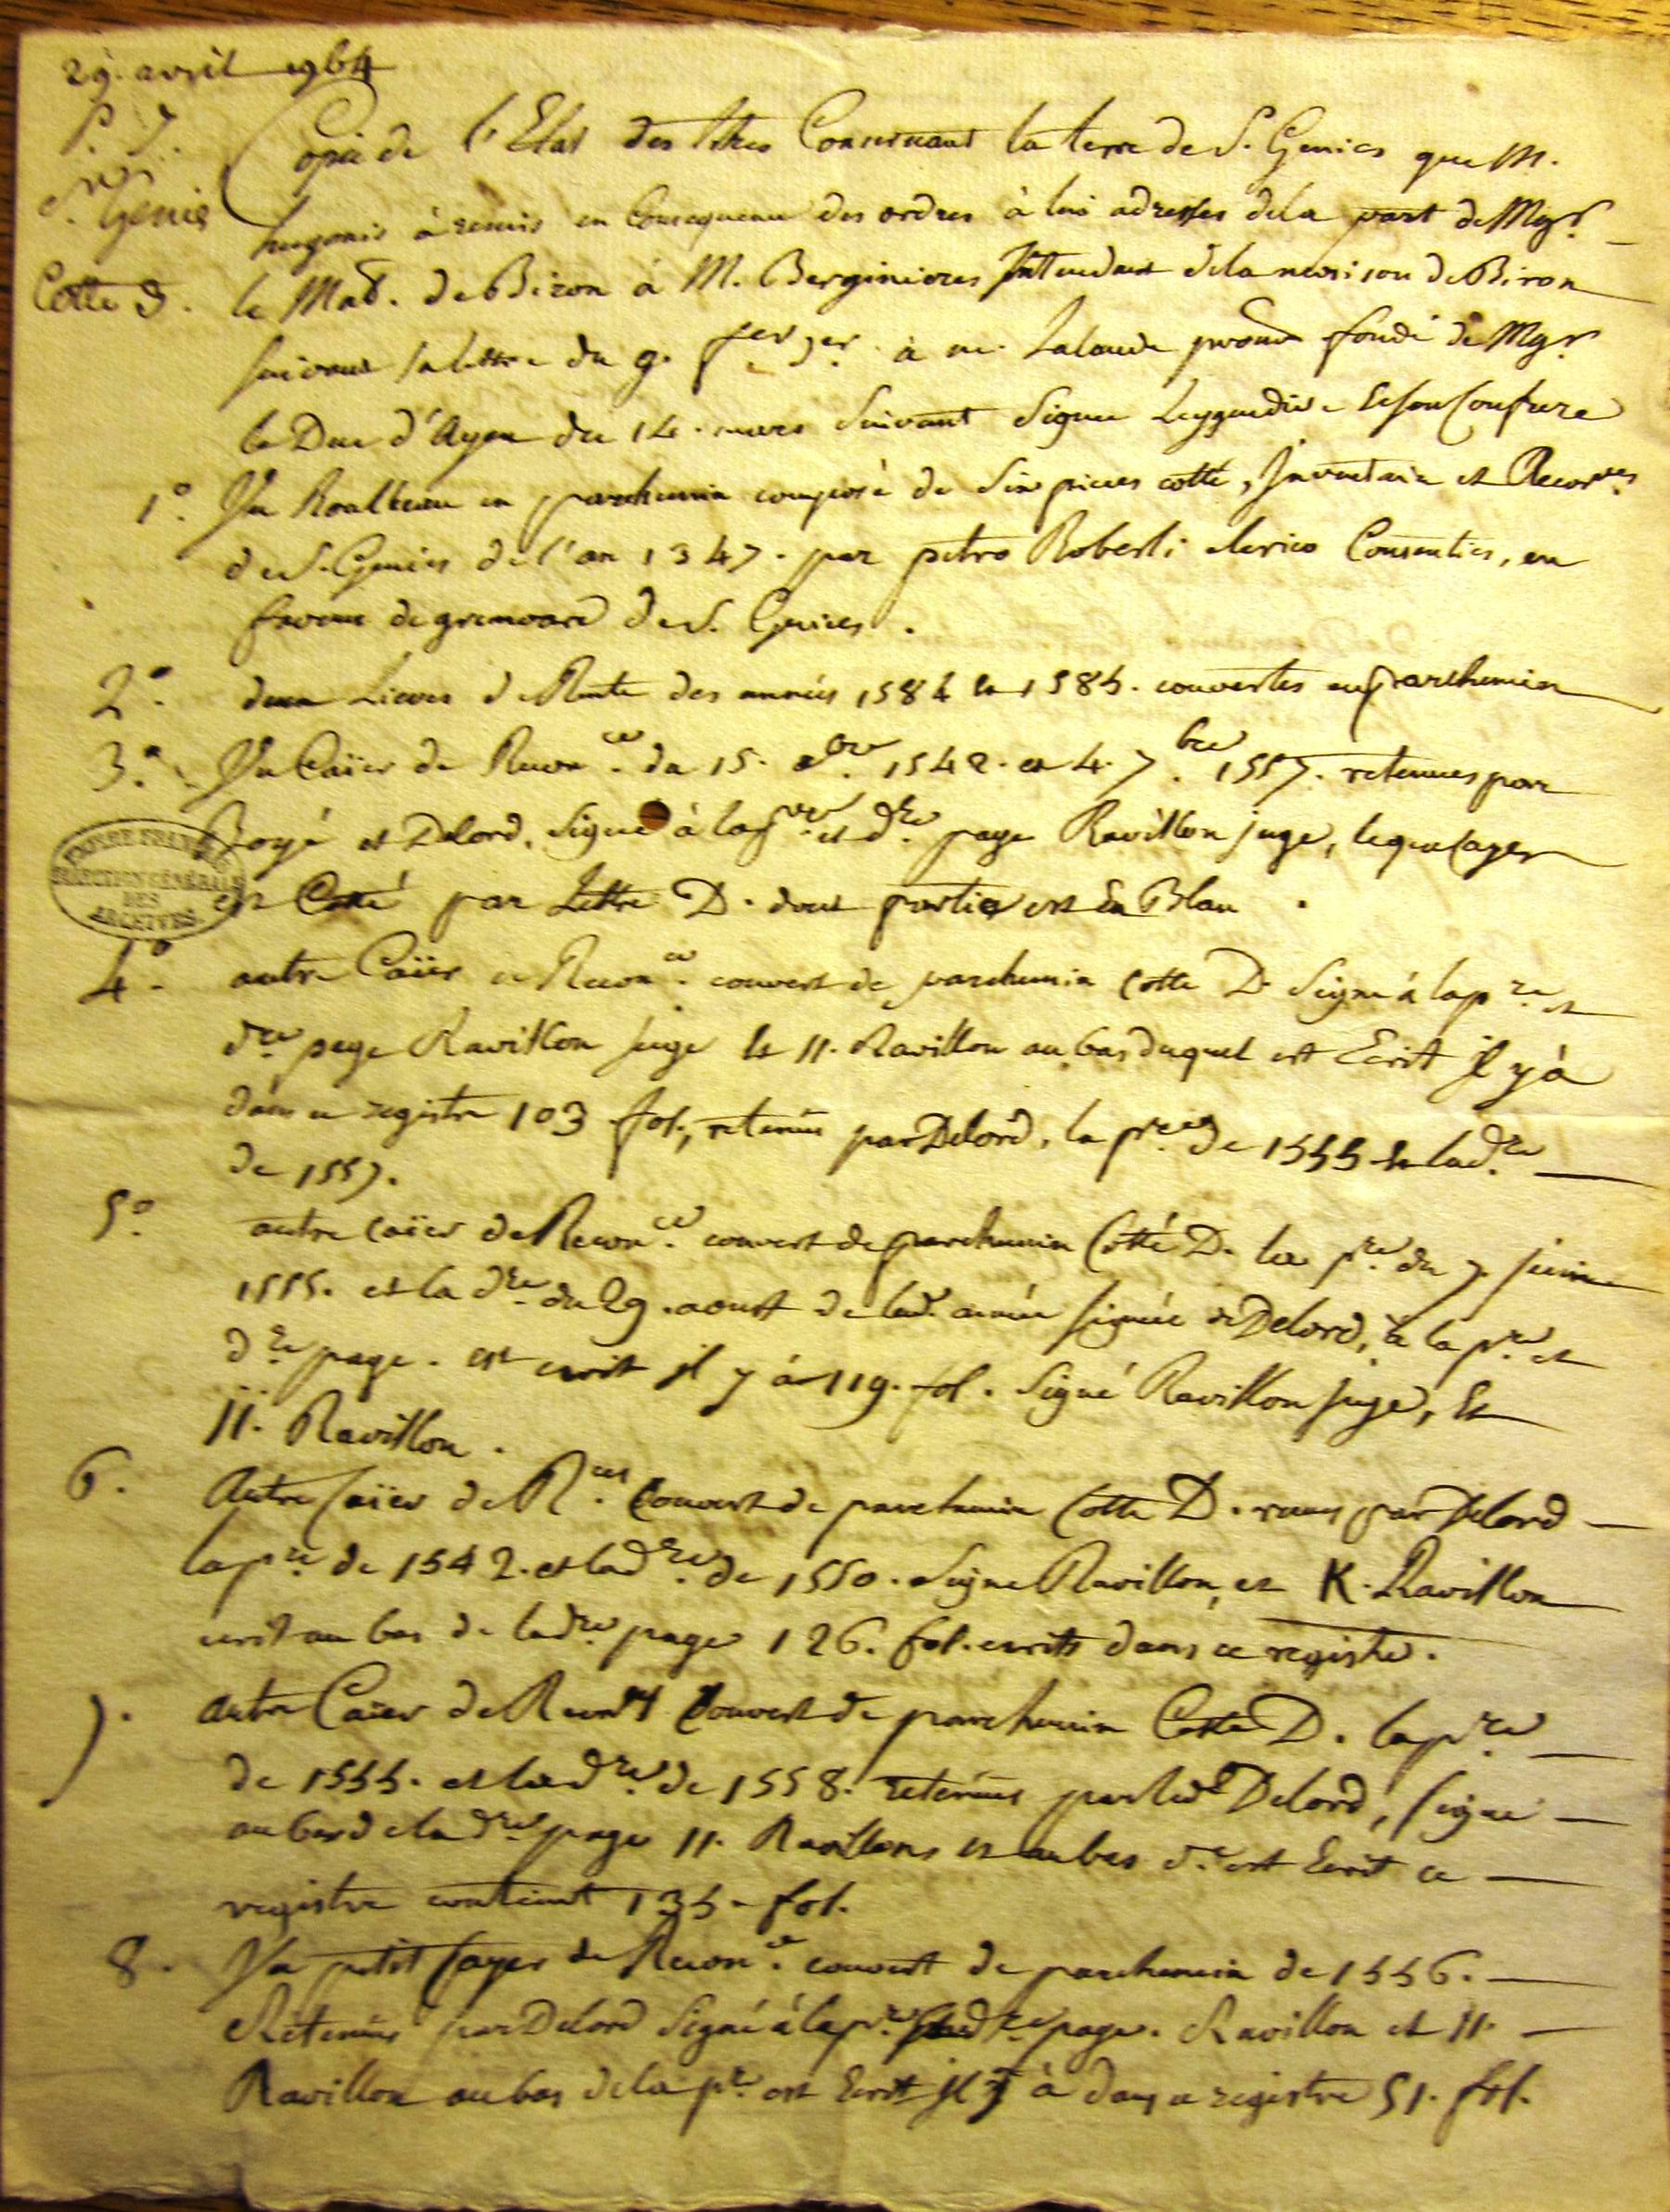 29. avril 1764
P. J.
St. Genie
Cotte D.
Copie de l'Etat des titres Concernant la terre de S. Genies que M.
hugonis à remis en Consequence des ordres à lui adressés dela part de Mgr.
le Mal. de Biron à M. Berginieres Intendant dela maison de Biron
suivant sa lettre du 9. fer. à me. Lalande fondé de Mgr.
le Duc d'Ayen du 14. mars suivant Signée Leygendie et son Confrere
1°. Un Roulleau en parchemin composé de Six pieces cotté, Inventaire et Reconces.
de S. Genies de l'an 1347. par petro Roberti clerico, en
faveur de S. Genies.
2°. deux Lieves de Rente des années 1584 et 1585. couvertes en parchemin
3°. Un Caïer de Reconce. du 15. 1542. et 4. 7bre. 1557. retenues par
et Delord, Signé à la pre. et dre. page Ravillon juge, lequel cayer
est Cotté par Lettre D. dont partie est En Blan.
4°. autre Caïer de Reconce. couvert de parchemin Cotté D. Signé à la pre. et
dre. page Ravillon juge et 11. Ravillon au bas duquel est Ecrit Il y à
dans ce registre 103 fol., retenües par Delord, la pre. de 1555 et la dre.
de 1557.
5°. autre caïer de Reconce. couvert de parchemin Cotté D. la pre. du 7. juin
1555. et la dre. du 29. aoust de lad. année signée de Delord, à la pre. et
dre. page. est ecrit il y à 119. fol. Signé Ravillon juge, et
11. Ravillon.
6. Autre Caïer de Rces. Couvert de parchemin Cotté D. par Delord
la pre. de 1542. et la dre. de 1550. Signe Ravillon, et K. Ravillon
ecrit au bas de la dre. page 126. fol. ecrits dans ce registre.
7. autre Caïer de Couvert de parchemin Cotté D. la pre.
de 1555. et la dre. de 1558. retenües par led. Delord, signé
au bas de la dre. page 11. Ravillons et au bas est Ecrit ce
registre contient 135. fol.
8. Un petit Cayer de Reconce. couvert de parchemin de 1556.
Retenües par Delord Signé à la pre. dre. page. Ravillon et 11.
Ravillon au bas dela pre. est Ecrit Il y à dans ce registre 51. fol.
EMPIRE FRANÇAIS
DIRECTION GÉNÉRALE
DES
ARCHIVES